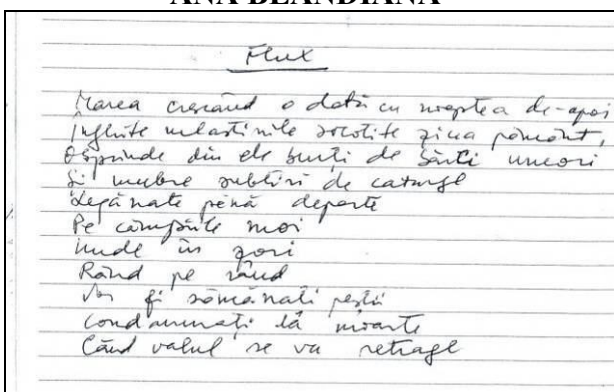 ANA BLANDIANA
Flux
Marea crescând o dată cu noaptea de-apoi
Înghite mlaștinile socotite ziua pământ,
Desprinde din ele burți de bărci uneori
Și umbre subțiri de catarge
Legănate până departe
Pe câmpiile moi
Unde în zori
Rând pe rând
Vor fi sămănați peștii
Condamnați la moarte
Când valul se va retrage